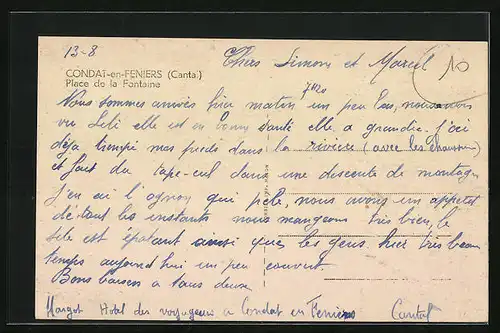 13-8
Chers Simone et Marcel
10
CONDAT-en-FENIERS (Cantal)
Place de la Fontaine
7h20
Nous sommes arrivés hier matin un peu las, nous avons
vu Lili elle est en bonne santé elle a grandie. J'ai
déja trempé mes pieds dans la rivière (avec les chaussures)
et fait du tape-cul dans une descente de montagne
J'en ai l'ognon qui pèle, nous avons un appetit
de tout les instants nous mangeons très bien, le
site est épatant ainsi que les gens. hier très beau
temps aujourd'hui un peu couvert.
Bons baisers a tous deux
Margot Hotel des voyageurs a Condat en Feniers Cantal